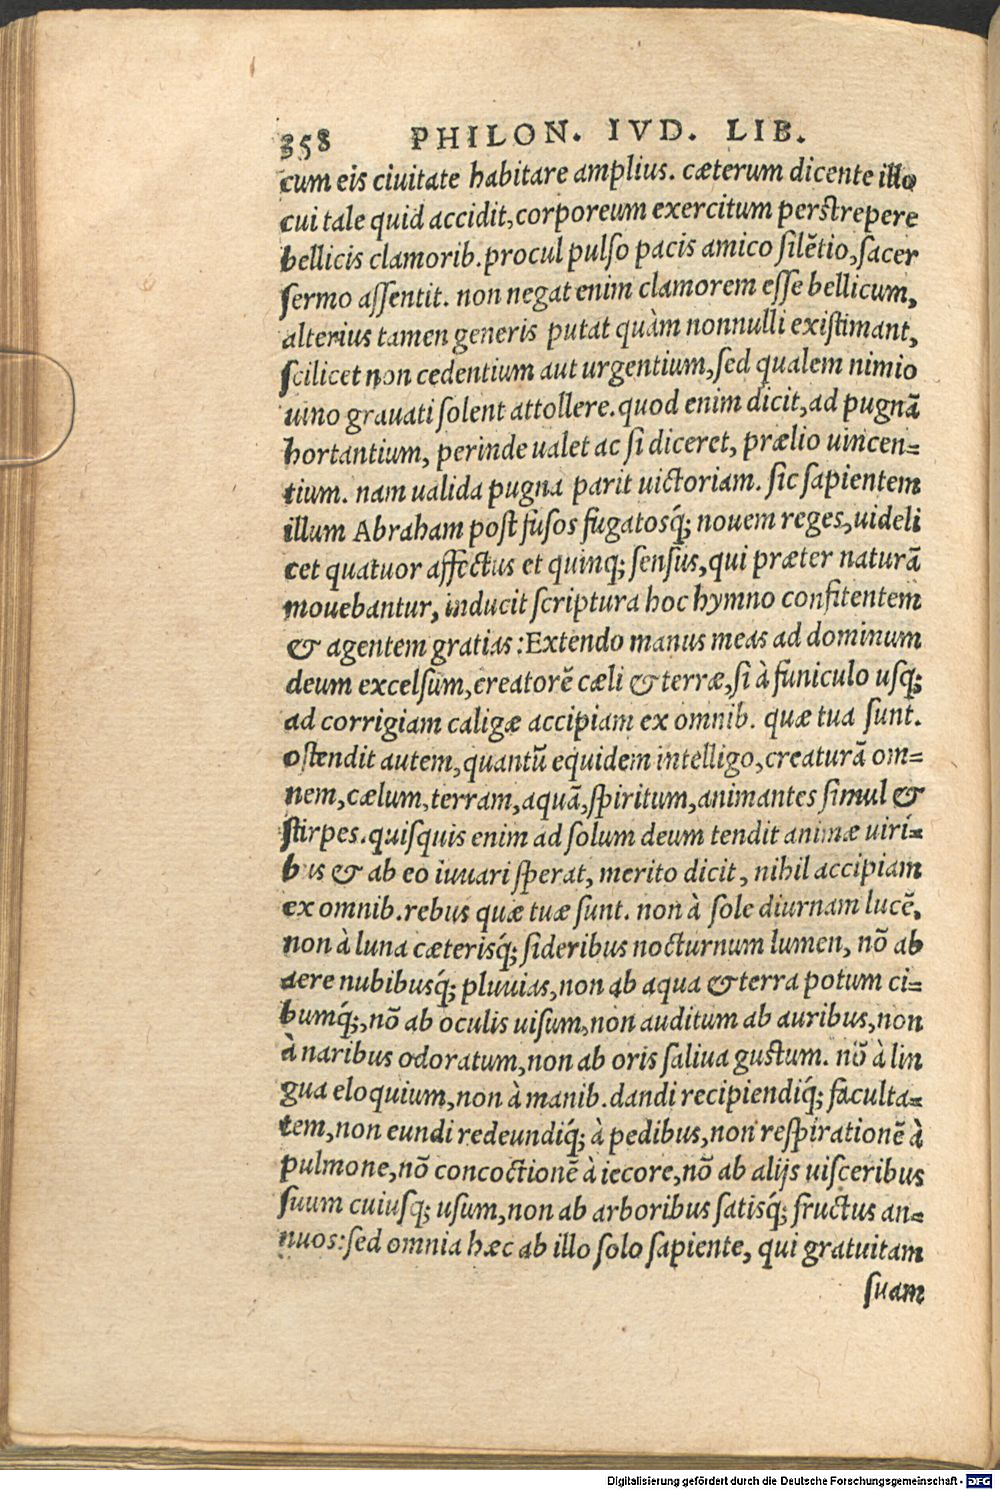 358 PHILON. IVD. LIB.
cum eis ciuitate habitare amplius. cæterum dicente illo
cui tale quid accidit, corporeum exercitum perstrepere
bellicis clamorib. procul pulso pacis amico silẽtio, sacer
sermo assentit. non negat enim clamorem esse bellicum,
alterius tamen generis putat quàm nonnulli existimant,
scilicet non cedentium aut urgentium, sed qualem nimio
uino grauati solent attollere. quod enim dicit, ad pugnã
hortantium, perinde ualet ac si diceret, prælio uincen=
tium. nam ualida pugna parit uictoriam. sic sapientem
illum Abraham post fusos fugatosq́; nouem reges, uideli
cet quatuor affectus et quinq; sensus, qui præter naturã
mouebantur, inducit scriptura hoc hymno confitentem
& agentem gratias: Extendo manus meas ad dominum
deum excelsum, creatorẽ cæli & terræ, si à funiculo usq;
ad corrigiam caligæ accipiam ex omnib. quæ tua sunt.
ostendit autem, quantũ equidem intelligo, creaturã om=
nem, cælum, terram, aquã, spiritum, animantes simul &
stirpes. quisquis enim ad solum deum tendit animæ uiri=
bus & ab eo iuuari sperat, merito dicit, nihil accipiam
ex omnib. rebus quæ tuæ sunt. non à sole diurnam lucẽ,
non à luna cæterisq́; sideribus nocturnum lumen, nõ ab
aere nubibusq́; pluuias, non ab aqua & terra potum ci=
bumq́;, nõ ab oculis uisum, non auditum ab auribus, non
à naribus odoratum, non ab oris saliua gustum. nõ à lin
gua eloquium, non à manib. dandi recipiendiq́; faculta=
tem, non eundi redeundiq́; à pedibus, non respirationẽ à
pulmone, nõ concoctionẽ à iecore, nõ ab alijs uisceribus
suum cuiusq; usum, non ab arboribus satisq́; fructus an=
nuos: sed omnia hæc ab illo solo sapiente, qui gratuitam
suam
Digitalisierung gefördert durch die Deutsche Forschungsgemeinschaft - DFG